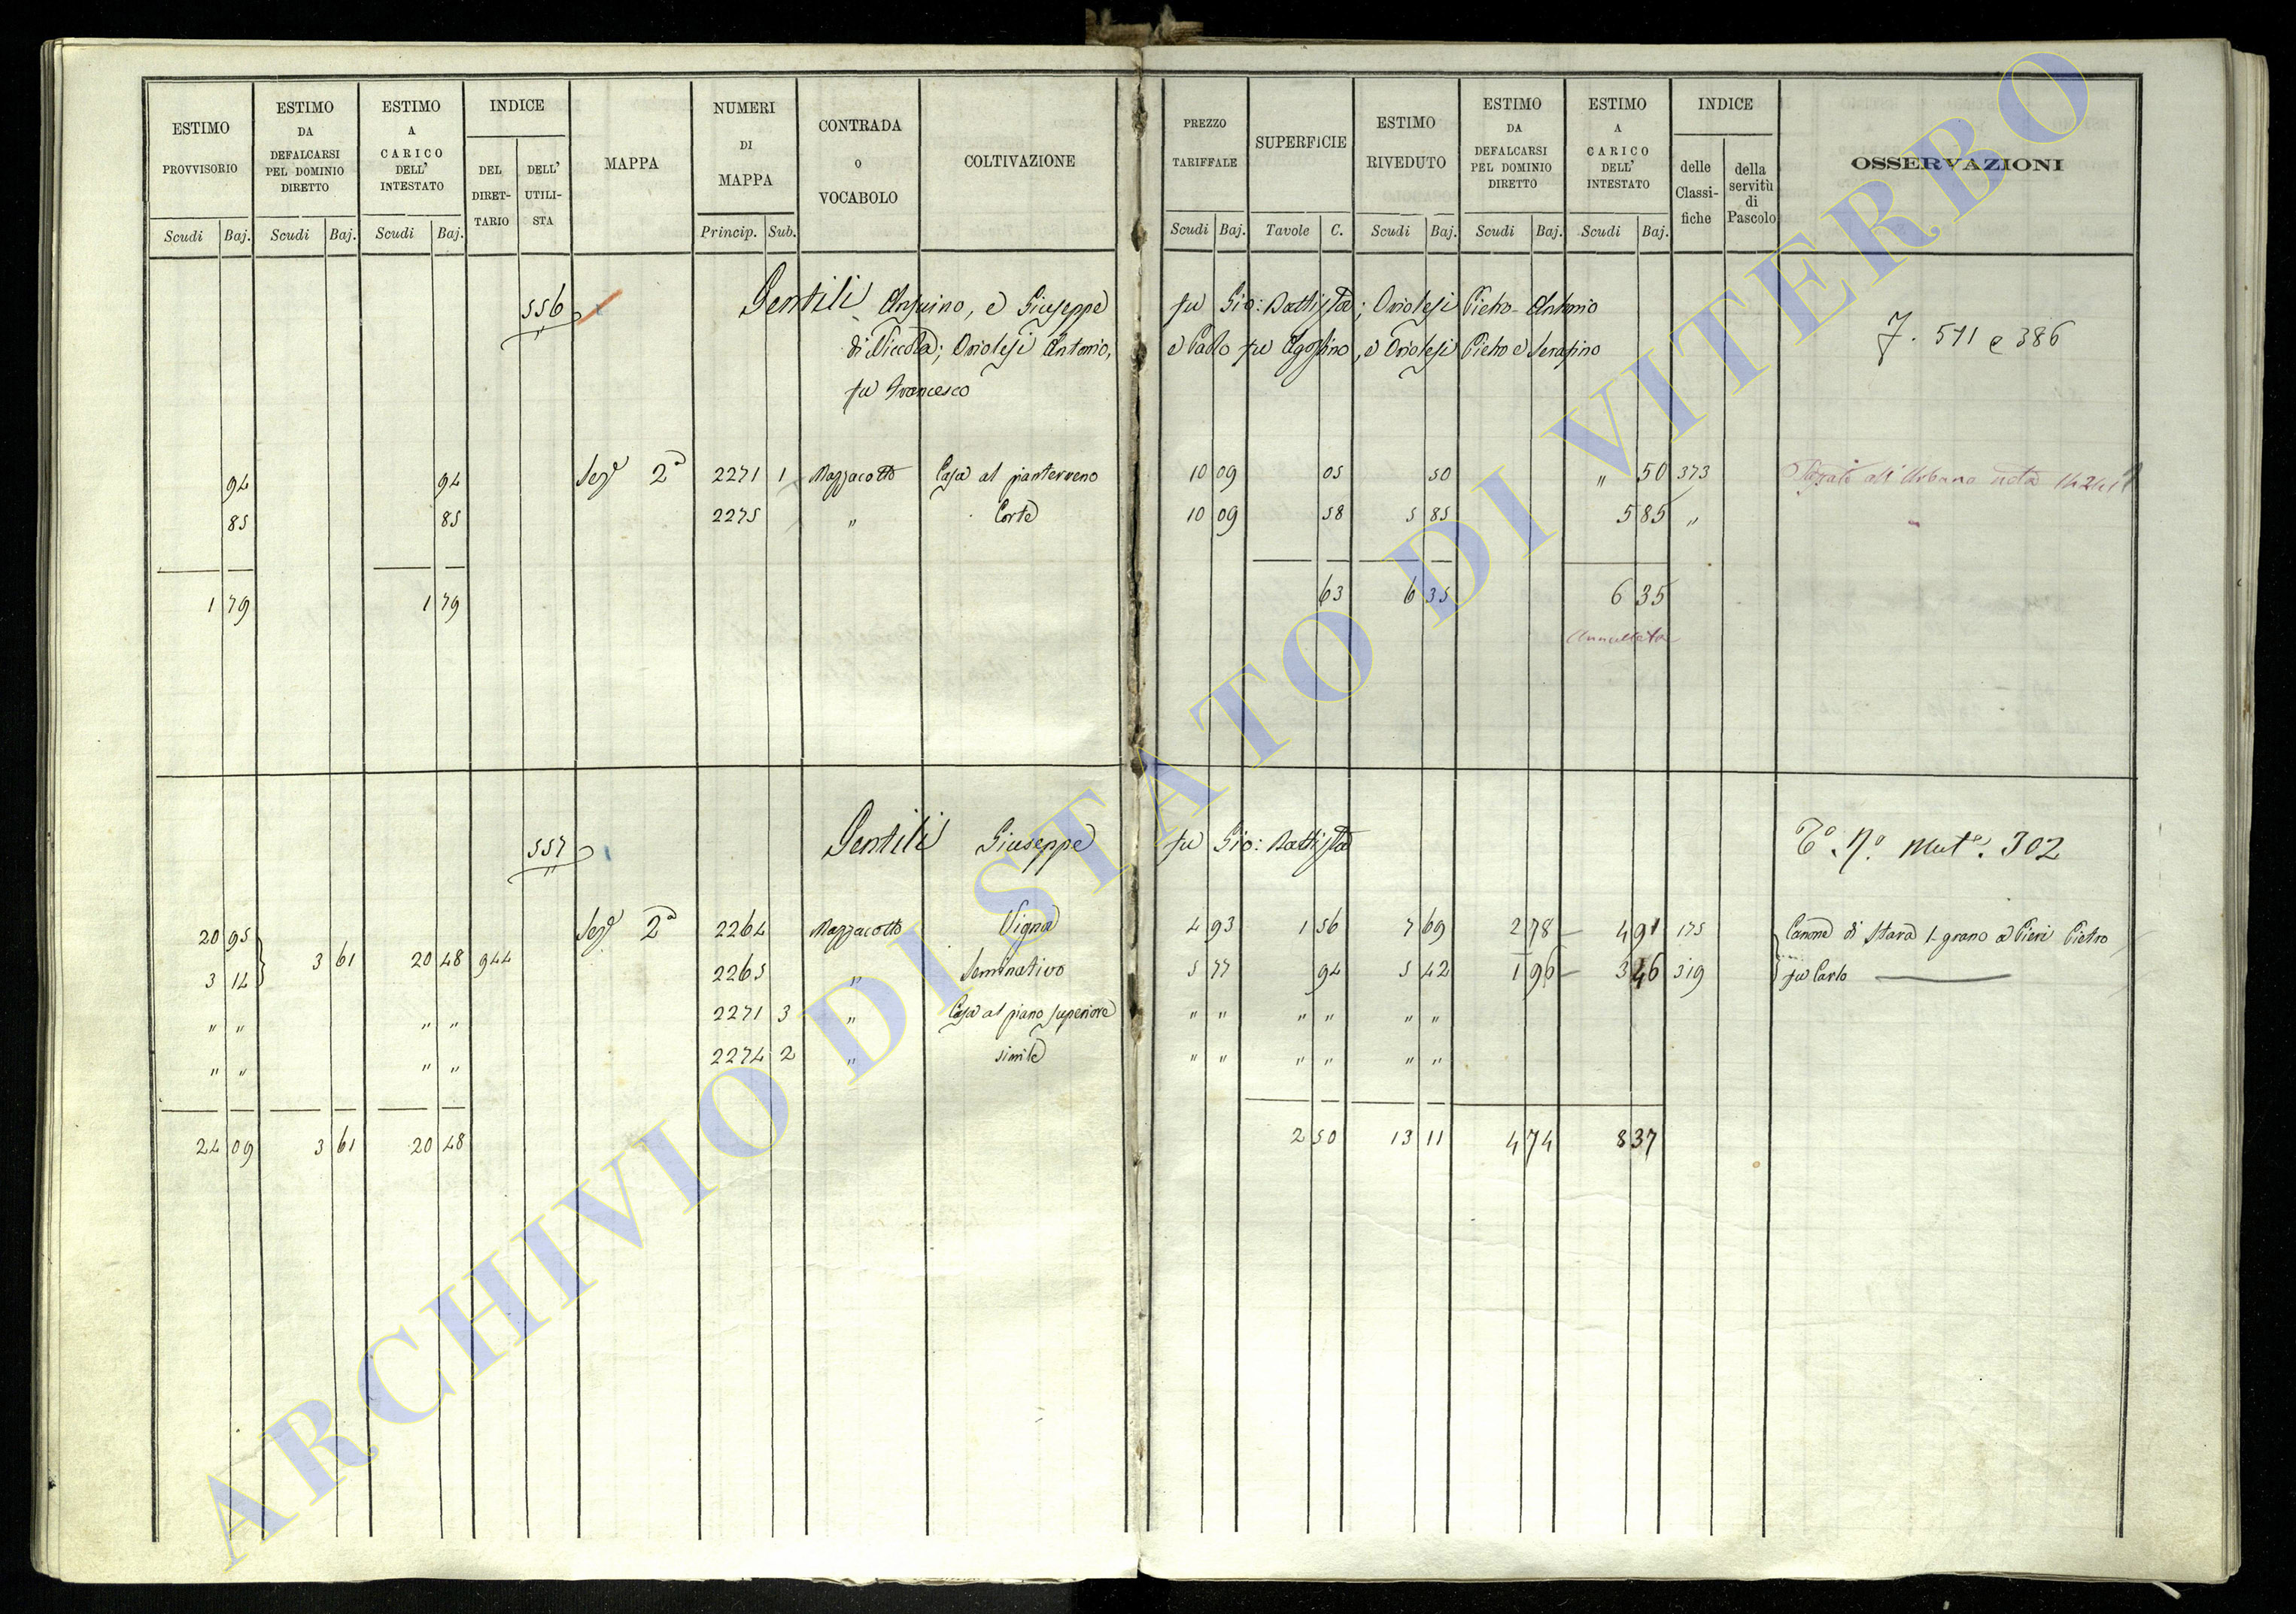 ESTIMO PROVVISORIO Scudi Baj.
ESTIMO DA DEFALCARSI PEL DOMINIO DIRETTO Scudi Baj.
ESTIMO A CARICO DELL' INTESTATO Scudi Baj.
INDICE DEL DIRET-TARIO DELL' UTILI-STA
MAPPA
NUMERI DI MAPPA Princip. Sub.
CONTRADA O VOCABOLO
COLTIVAZIONE
PREZZO TARIFFALE Scudi Baj.
SUPERFICIE Tavole C.
ESTIMO RIVEDUTO Scudi Baj.
ESTIMO DA DEFALCARSI PEL DOMINIO DIRETTO Scudi Baj.
ESTIMO A CARICO DELL' INTESTATO Scudi Baj.
INDICE delle Classi-fiche della servitù di Pascolo
OSSERVAZIONI
556 Gentili Ansuino, e Giuseppe fu Gio: Battista; Oriolesi Pietro-Antonio
di Niccola; Oriolesi Antonio, e Paolo fu Agostino, e Oriolesi Pietro e Serafino 7. 511 e 386
fu Francesco
94 94 Sez.e 2a 2271 1 Mazzacotto Casa al pianterreno 10 09 05 50 " 50 373 all'Urbano
85 85 2275 " Corte 10 09 58 5 85 5 85 " "
1 79 1 79 63 6 35 6 35
Annullata
557 Gentili Giuseppe fu Gio: Battista To. No. Muto. 302
20 95 Sez.e 2a 2264 Mazzacotto Vigna 4 93 1 56 7 69 2 78 4 91 175 Canone di Stara 1 grano a Pieri Pietro
3 61 20 48 944
3 14 2265 " Seminativo 5 77 94 5 42 1 96 3 46 319 fu Carlo
" " " " 2271 3 " Casa al piano superiore " " " " " "
" " " " 2274 2 " simile " " " " " "
24 09 3 61 20 48 2 50 13 11 4 74 8 37
ARCHIVIO DI STATO DI VITERBO